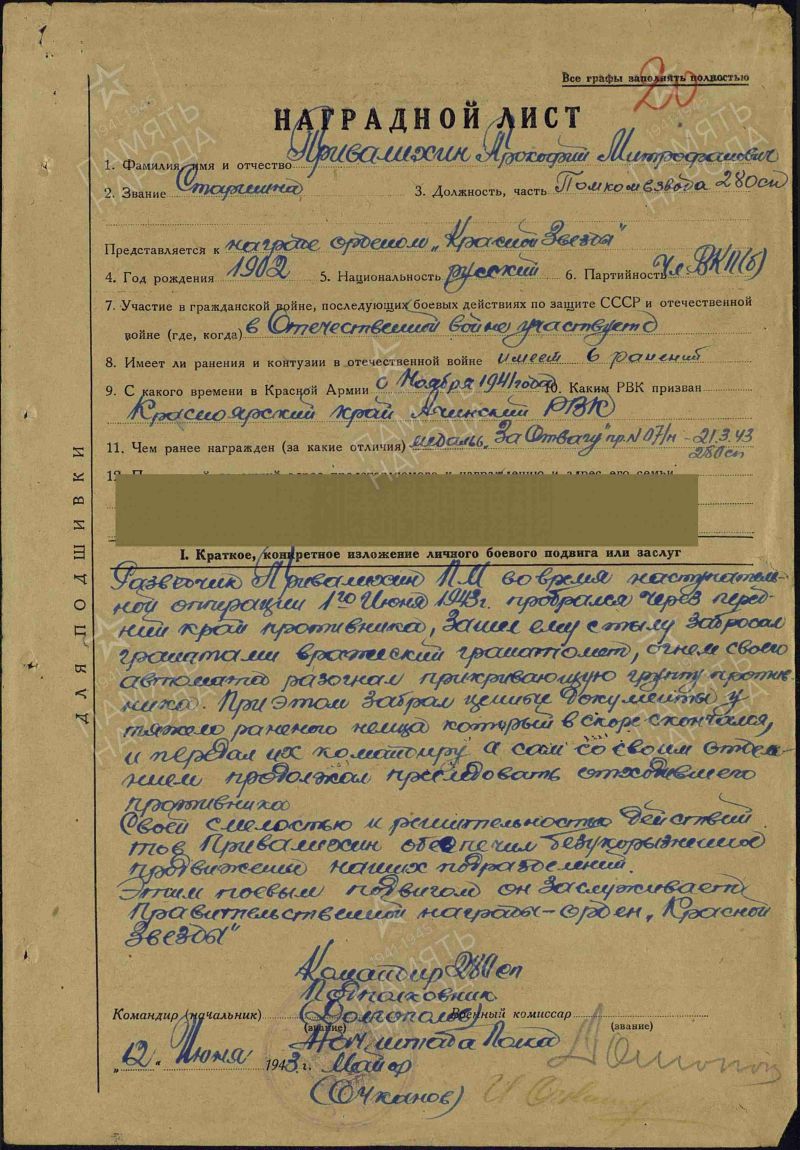 Все графы заполнять полностью
20
НАГРАДНОЙ ЛИСТ
1. Фамилия, имя и отчество Привалихин Прокофий Митрофанович
2. Звание Старшина 3. Должность, часть Помкомвзвода 280сп
Представляется к награде орденом „Красной Звезды"
4. Год рождения 1902 5. Национальность русский 6. Партийность Чл. ВКП(б)
7. Участие в гражданской войне, последующих боевых действиях по защите СССР и отечественной
войне (где, когда) в Отечественной войне участвует с
8. Имеет ли ранения и контузии в отечественной войне имеет 6 ранений
9. С какого времени в Красной Армии с Ноября 1941 года 10. Каким РВК призван
Красноярский край Ачинский РВК
11. Чем ранее награжден (за какие отличия) медаль „За Отвагу" пр. N 07/н - 21.3.43
280сп
I. Краткое, конкретное изложение личного боевого подвига или заслуг
Разведчик Привалихин П М во время наступатель-
ной опирации 1го Июня 1943г. пробрался через перед-
ний край противника, зашел ему с тылу забросал
гранатами вражеский гранатомет, огнем своего
автомата разогнал прикривающую групу против-
ника. При этом забрал ценные документы у
тяжело раненого немца который в скоре скончался,
и передал их командиру а сам со своим отделе-
нием продолжал приследовать отходившего
противника
Своей смелостью и решительностью действий
тов Привалихин обеспечил безукорызненное
продвижение наших подразделений.
Этим боевым подвигом он заслуживает
Правительственной награды - орден „Красной
Звезды"
Командир 280 сп
Подполковник
Командир (начальник) (Долгополов) Военный комиссар
(звание) (звание)
Нач. штаба Полка
„12" Июня 1943 г. Майор
(Очканов)
ДЛЯ ПОДШИВКИ
1941-1945
ПАМЯТЬ
НАРОДА